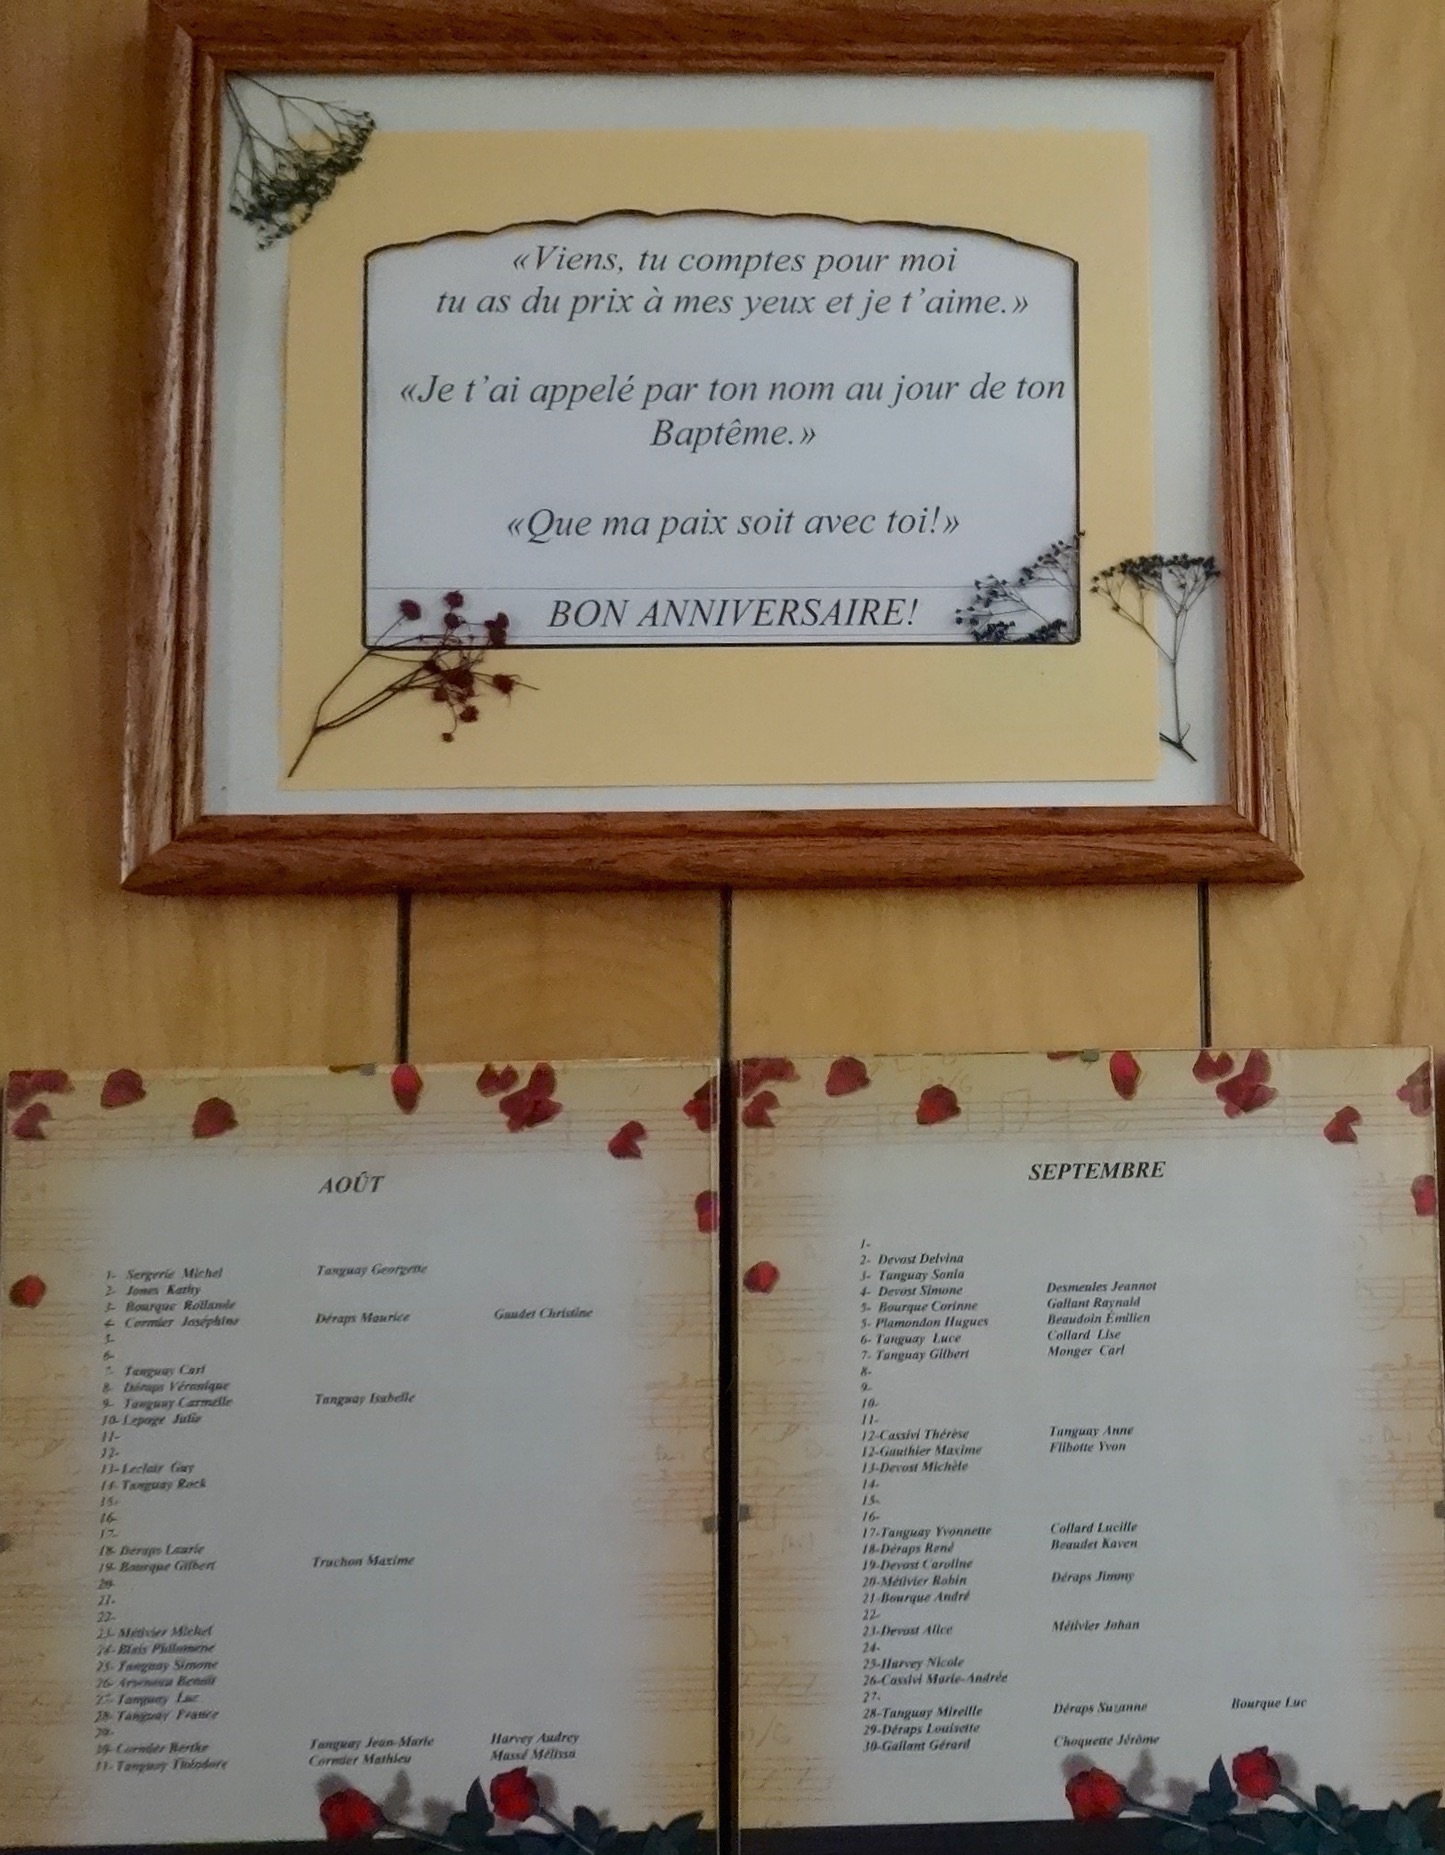 «Viens, tu comptes pour moi
tu as du prix à mes yeux et je t'aime.»
«Je t'ai appelé par ton nom au jour de ton
Baptême.»
«Que ma paix soit avec toi!»
BON ANNIVERSAIRE!
AOÛT
1- Sergerie Michel Tanguay Georgette
2- Jones Kathy
3- Bourque Rollande
4- Cormier Joséphine Déraps Maurice Gaudet Christine
5-
6-
7- Tanguay Carl
8- Déraps Véronique
9- Tanguay Carmelle Tanguay Isabelle
10- Lepage Julie
11-
12-
13- Leclair Guy
14- Tanguay Rock
15-
16-
17-
18- Deraps Laurie
19- Bourque Gilbert Truchon Maxime
20-
21-
22-
23- Métivier Michel
24- Blais Philomene
25- Tanguay Simone
26- Arseneau Benoît
27- Tanguay Luc
28- Tanguay France
29-
30- Cormier Berthe Tanguay Jean-Marie Harvey Audrey
31- Tanguay Théodore Cormier Mathieu Massé Mélissa
SEPTEMBRE
1-
2- Devost Delvina
3- Tanguay Sonia
4- Devost Simone Desmeules Jeannot
5- Bourque Corinne Gallant Raynald
5- Plamondon Hugues Beaudoin Émilien
6- Tanguay Luce Collard Lise
7- Tanguay Gilbert Monger Carl
8-
9-
10-
11-
12-Cassivi Thérèse Tanguay Anne
12-Gauthier Maxime Flibotte Yvon
13-Devost Michèle
14-
15-
16-
17-Tanguay Yvonnette Collard Lucille
18-Déraps René Beaudet Kaven
19-Devost Caroline
20-Métivier Robin Déraps Jimmy
21-Bourque André
22-
23-Devost Alice Métivier Johan
24-
25-Harvey Nicole
26-Cassivi Marie-Andrée
27-
28-Tanguay Mireille Déraps Suzanne Bourque Luc
29-Déraps Louisette
30-Gallant Gérard Choquette Jérôme